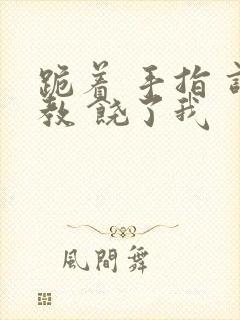 跪着 手指
教 饶了我
風間舞